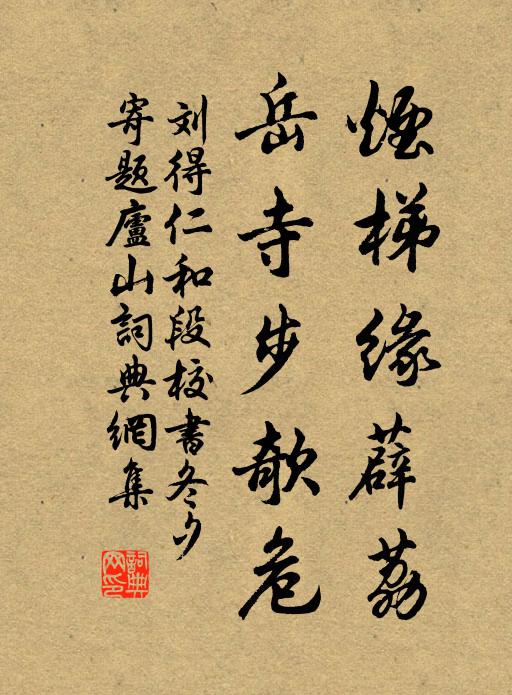 煙梯緣薜荔
岳寺步欹危
刘得仁和段校書冬夕
寄題廬山詞典網集
詞典網印